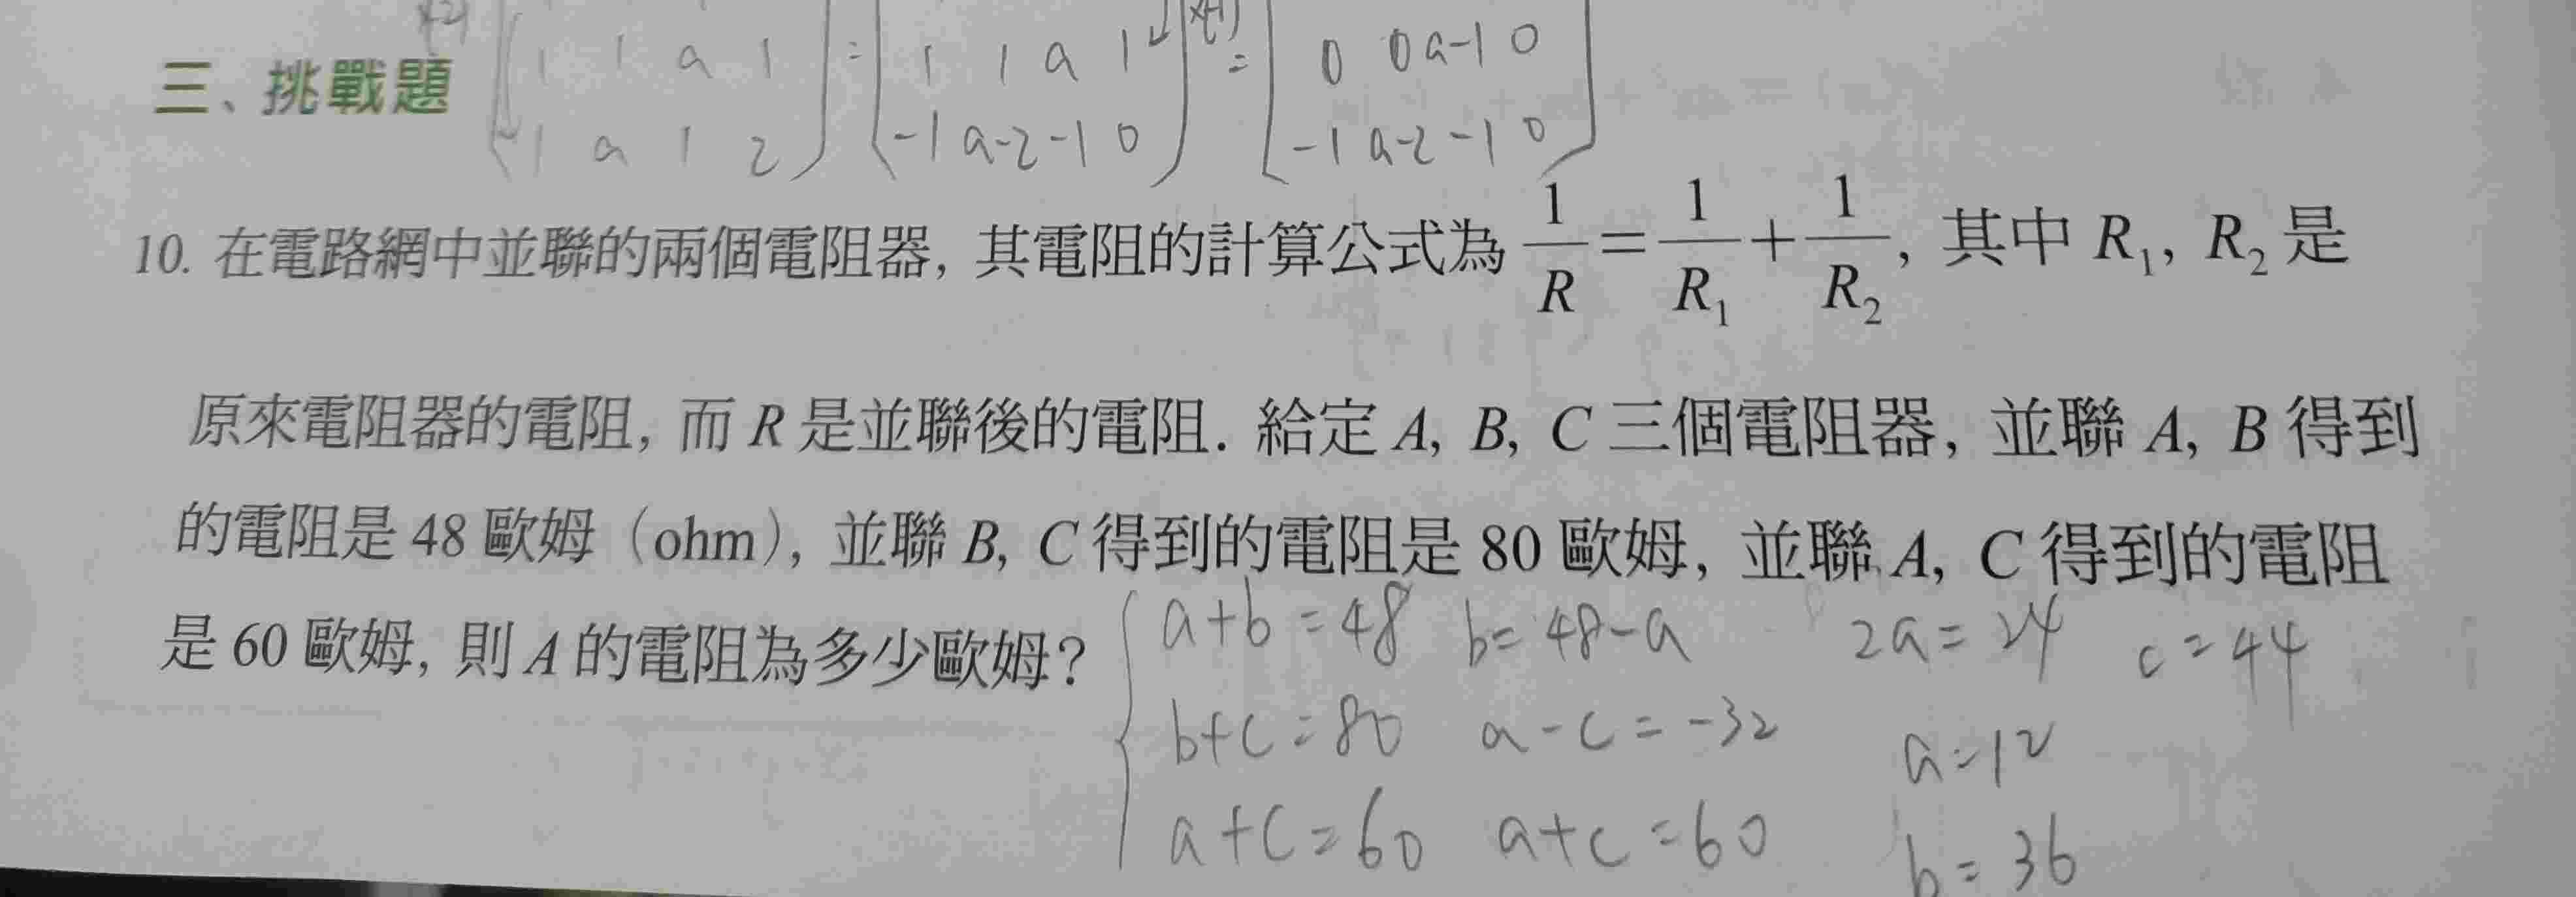 三、挑戰題
1 1 a 1 = 1 1 a 1 = 0 0 a-1 0
-1 a 1 2 -1 a-2 -1 0 -1 a-2 -1 0
10. 在電路網中並聯的兩個電阻器, 其電阻的計算公式為 1/R = 1/R₁ + 1/R₂, 其中 R₁, R₂ 是
原來電阻器的電阻, 而 R 是並聯後的電阻. 給定 A, B, C 三個電阻器, 並聯 A, B 得到
的電阻是 48 歐姆 (ohm), 並聯 B, C 得到的電阻是 80 歐姆, 並聯 A, C 得到的電阻
是 60 歐姆, 則 A 的電阻為多少歐姆?
a+b=48 b=48-a 2a=24 c=44
b+c=80 a-c=-32 a=12
a+c=60 a+c=60 b=36